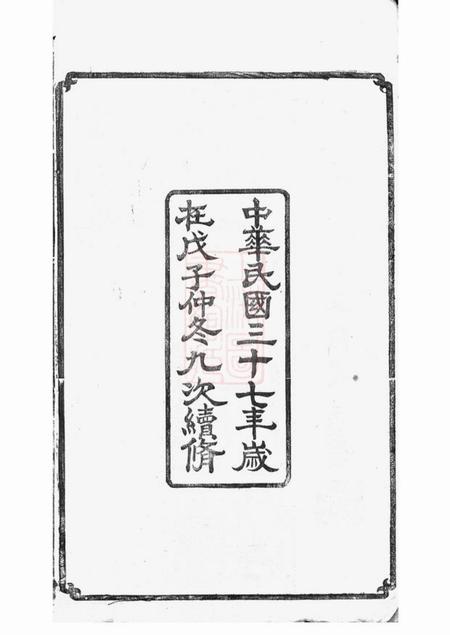 中華民國三十七年歲
在戊子仲冬九次續脩